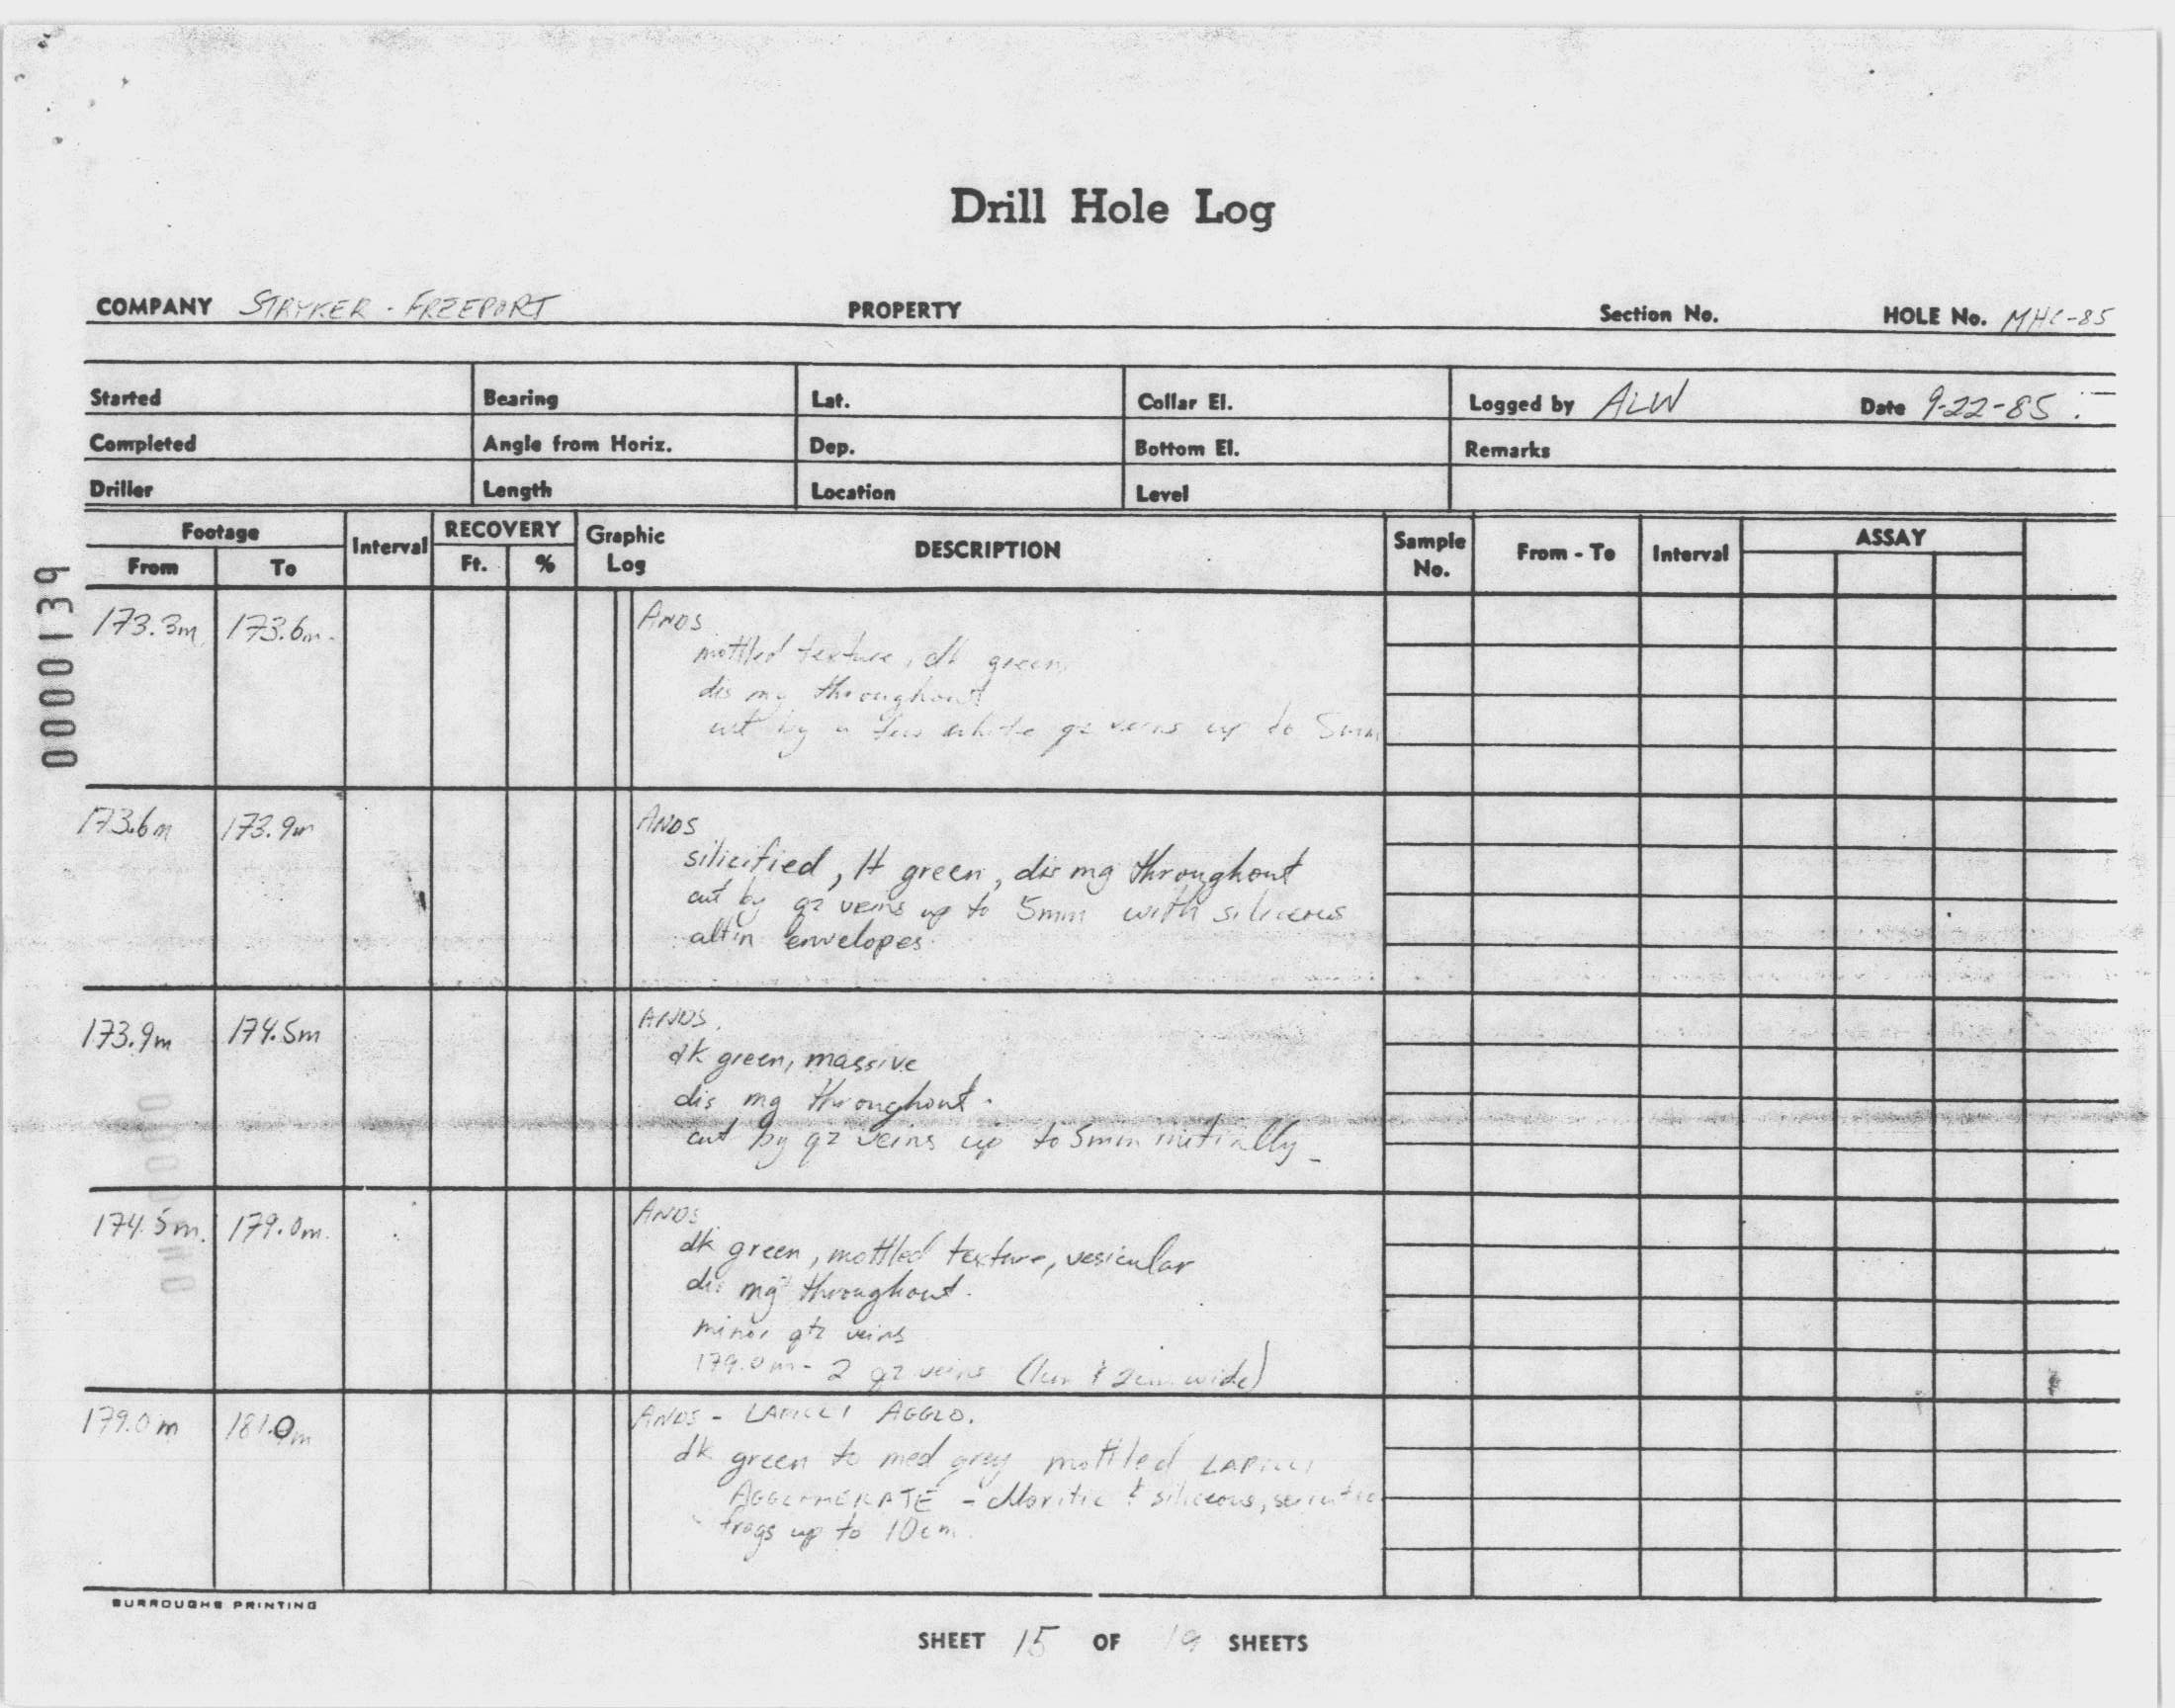 Drill Hole Log
COMPANY STRYKER - FREEPORT PROPERTY Section No. HOLE No. MHC-85
Started Bearing Lat. Collar El. Logged by ALW Date 9-22-85
Completed Angle from Horiz. Dep. Bottom El. Remarks
Driller Length Location Level
Footage Interval RECOVERY Graphic Log DESCRIPTION Sample No. From - To Interval ASSAY
From To Ft. %
000139
173.3m 173.6m ANDS
mottled texture, dk green,
dis mg throughout
cut by a few white qz veins up to 5mm
173.6m 173.9m ANDS
silicified, lt green, dis mg throughout
cut by qz veins up to 5mm with siliceous
altin envelopes.
173.9m 174.5m ANDS.
dk green, massive
dis mg throughout.
cut by qz veins up to 5mm initially
174.5m. 179.0m. ANDS
dk green, mottled texture, vesicular
dis mg throughout.
minor qtz veins
179.0m - 2 qz veins (1cm & 2cm wide)
179.0m 181.0m ANDS - LAPILLI AGGLO.
dk green to med grey mottled LAPILLI
AGGLOMERATE - chloritic & siliceous,
frags up to 10cm.
BURROUGHS PRINTING
SHEET 15 OF 19 SHEETS